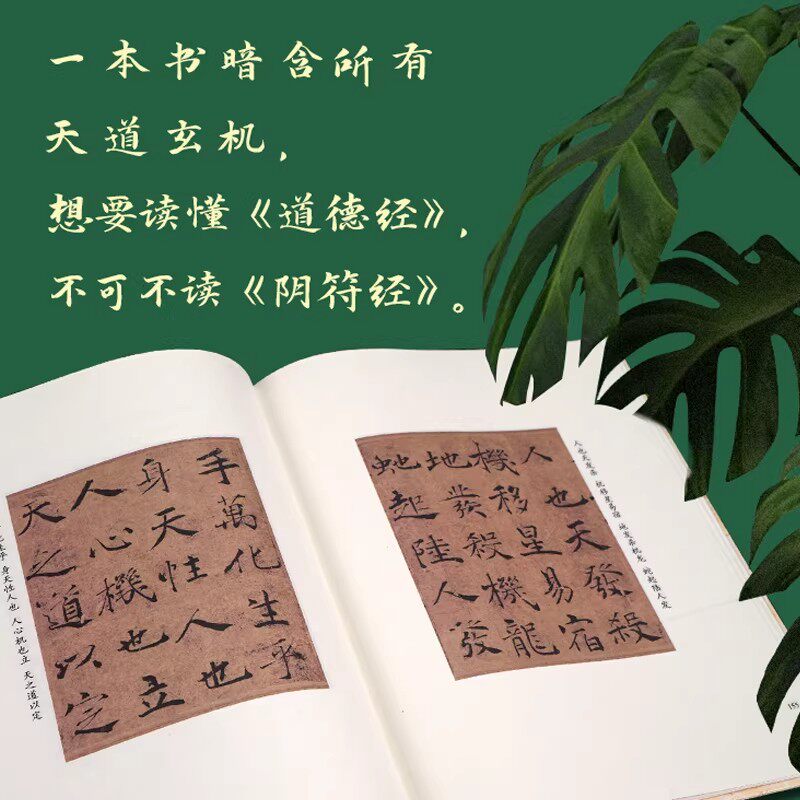 一本书暗含所有
天道玄机，
想要读懂《道德经》，
不可不读《阴符经》。
手萬化生乎
身天性人也
人心機也立
天之道以定
化生乎 身天性人也 人心机也立 天之道以定
人也天發殺
機移星易宿
地發殺機龍
虵起陸人發
人也天发杀 机移星易宿 地发杀机龙 蛇起陆人发
155